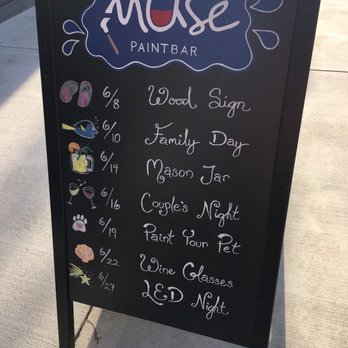 Muse
PAINTBAR
6/8 Wood Sign
6/10 Family Day
6/14 Mason Jar
6/16 Couple's Night
6/19 Paint Your Pet
6/22 Wine Glasses
6/27 LED Night